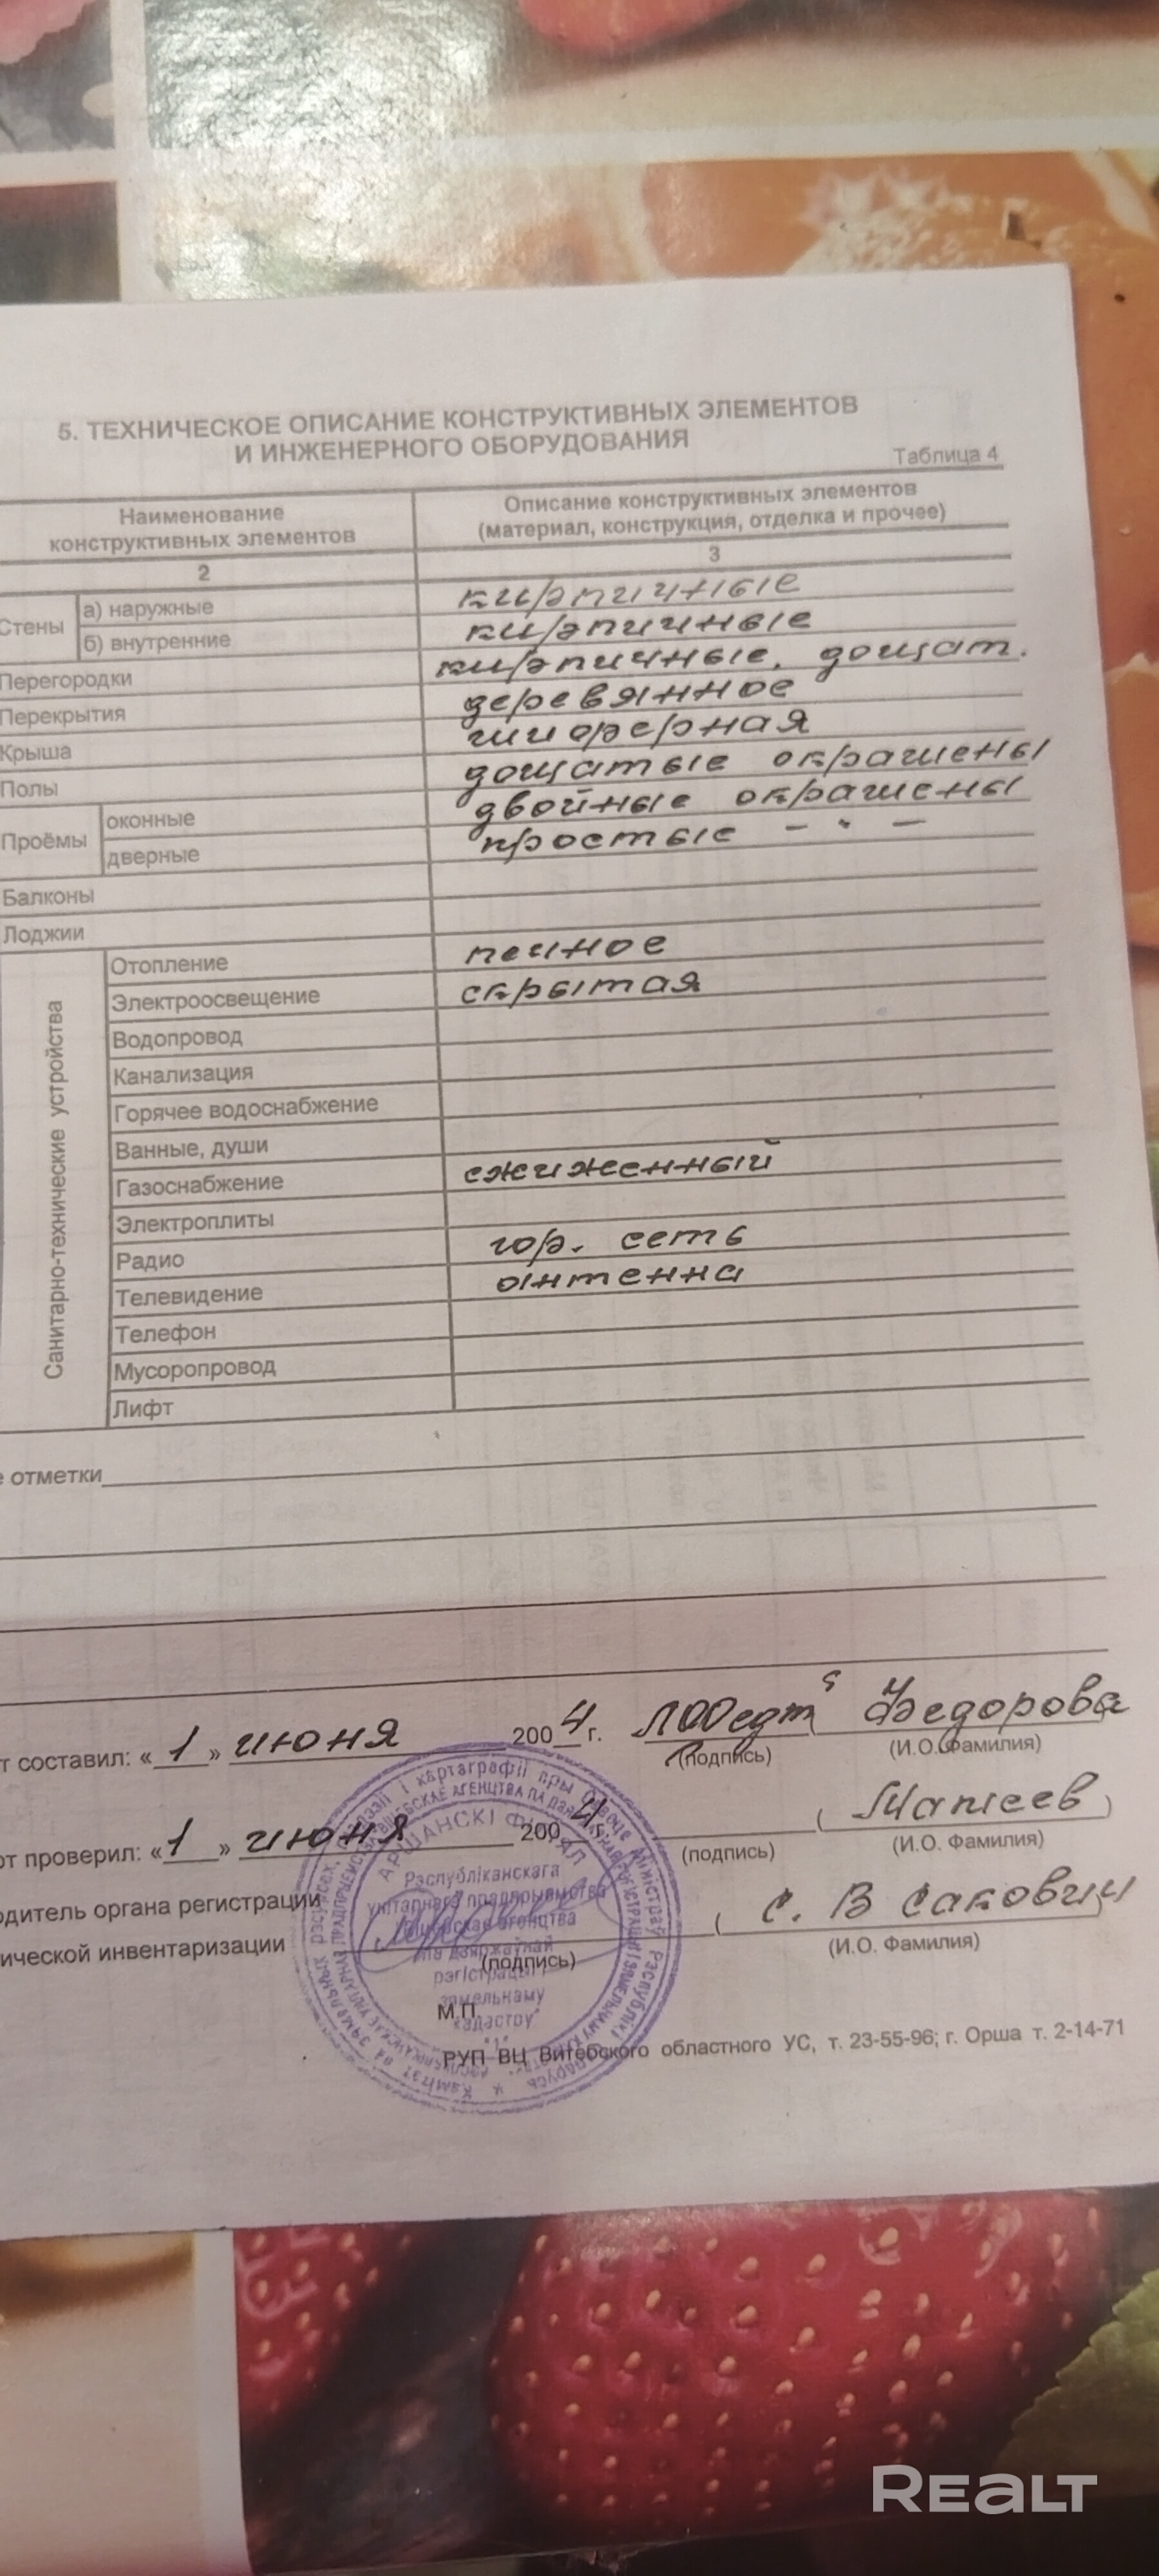 5. ТЕХНИЧЕСКОЕ ОПИСАНИЕ КОНСТРУКТИВНЫХ ЭЛЕМЕНТОВ
И ИНЖЕНЕРНОГО ОБОРУДОВАНИЯ
Таблица 4
Наименование конструктивных элементов
Описание конструктивных элементов
(материал, конструкция, отделка и прочее)
2 3
Стены а) наружные кирпичные
б) внутренние кирпичные
Перегородки кирпичные, дощат.
Перекрытия деревянное
Крыша шиферная
Полы дощатые окрашены
Проёмы оконные двойные окрашены
дверные простые - " -
Балконы
Лоджии
Санитарно-технические устройства
Отопление печное
Электроосвещение скрытая
Водопровод
Канализация
Горячее водоснабжение
Ванные, души
Газоснабжение сжиженный
Электроплиты
Радио гор. сеть
Телевидение антенна
Телефон
Мусоропровод
Лифт
е отметки
т составил: « 1 » июня 2004 г. ( Федорова )
(подпись) (И.О. Фамилия)
от проверил: « 1 » июня 2004 ( Матсеев )
(подпись) (И.О. Фамилия)
одитель органа регистрации
ической инвентаризации ( С. В Сакович )
(подпись) (И.О. Фамилия)
М.П.
АРШАНСКІ ФІЛІЯЛ
Рэспубліканскага
унітарнага прадпрыемства
агенцтва
па дзяржаўнай
рэгістрацыі
зямельнаму
кадастру
РУП ВЦ Витебского областного УС, т. 23-55-96; г. Орша т. 2-14-71
REALT